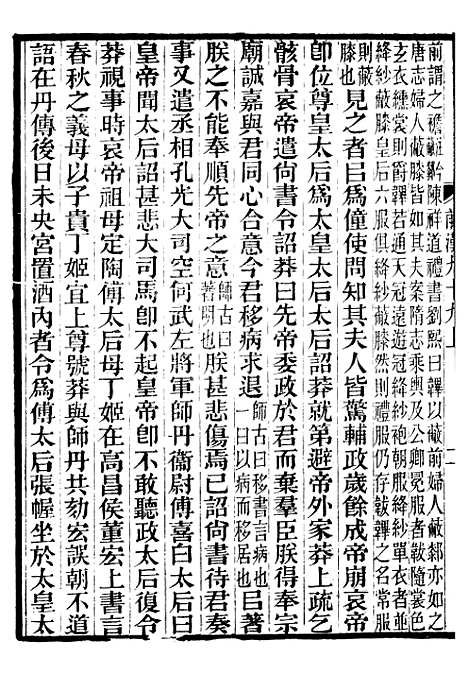 前謂之襜廱紟陳祥道禮書劉熙曰韠以蔽前婦人蔽郄亦如之
前漢九十九上　二
唐志婦人蔽膝皆如其夫案隋志乘輿公冕服者皆韍裳色
玄衣纁裳則爵韠若通天冠遠遊冠絳紗袍朝服絳紗單衣者並
絳紗蔽膝皇后六服俱絳紗蔽膝然則禮服仍存韍韠之名常服
則蔽膝也見之者㠯爲僮使問其夫人皆驚輔政歲餘成帝崩哀帝
卽位尊皇太后爲太皇太后太后詔莽就第避帝外家莽上疏乞
骸骨哀帝遣尚書令詔莽曰先帝委政於君而棄羣臣朕得奉宗
廟誠嘉與君同心合意今君移病求退師古曰移書言病也一曰以病而移居也㠯著
朕之不能奉順先帝之意師古曰著明也朕甚悲傷焉已詔尚書待君奏
事又遣丞相孔光大司空何武左將軍師丹衞尉傅喜白太后曰
皇帝聞太后詔甚悲大司馬卽不起皇帝卽不敢聽政太后復令
莽視事時哀帝祖母定陶傅太后母丁姬在高昌侯董宏上書言
春秋之義母以子貴丁姬宜上尊號莽與師丹共劾宏誤朝不道
語在丹傳後日未央宮置酒內者令爲傅太后張幄坐於太皇太